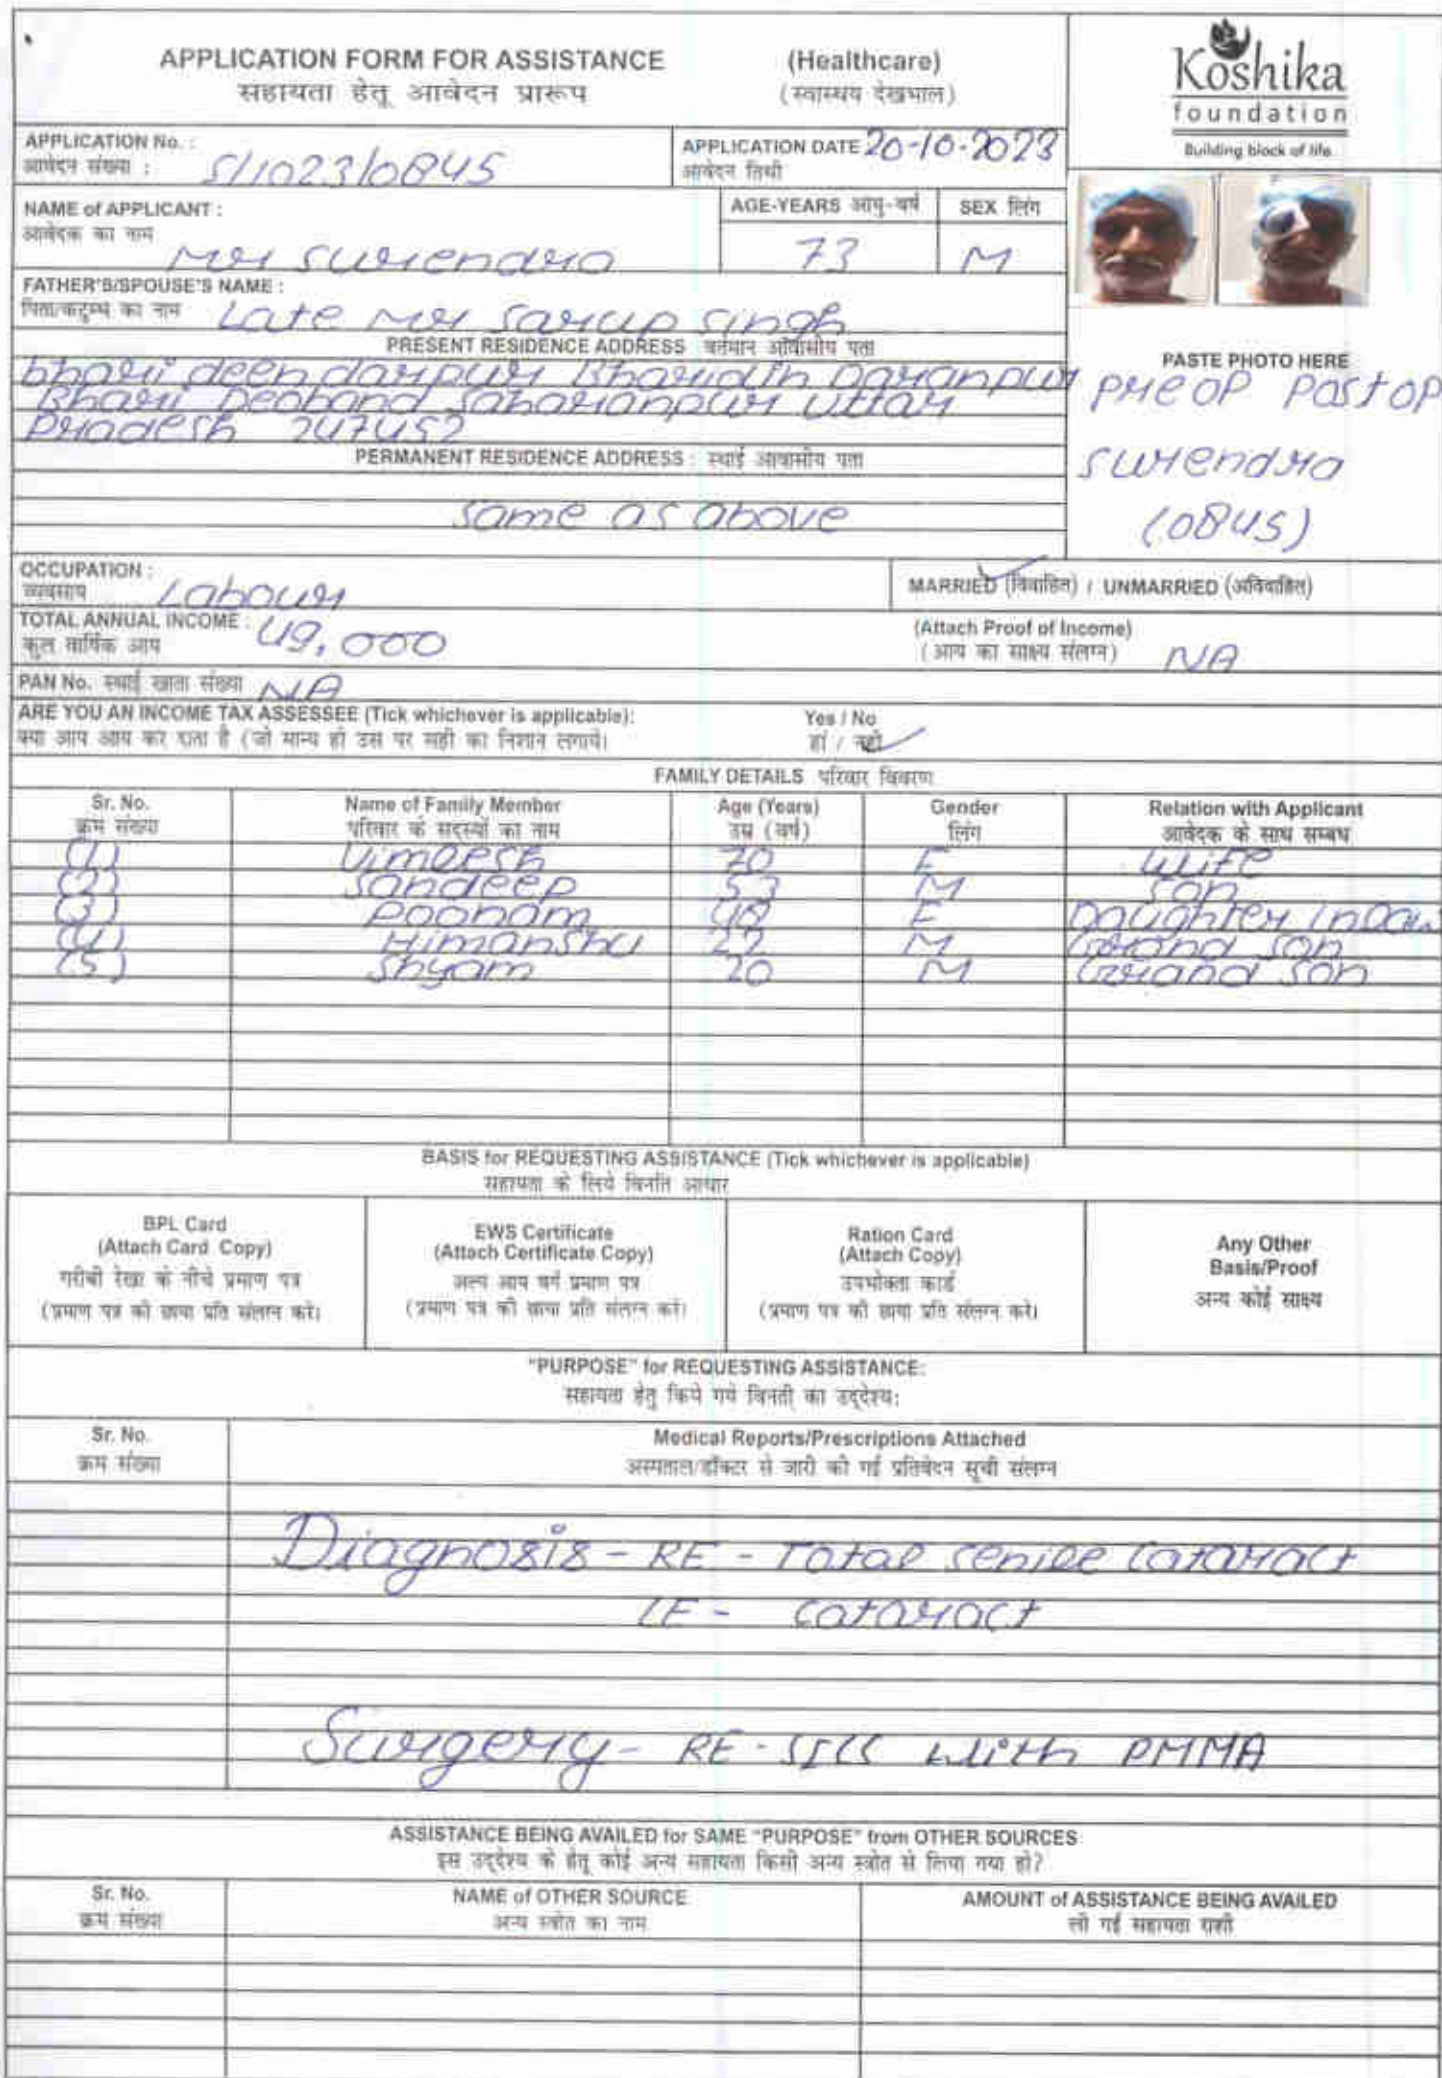 APPLICATION FORM FOR ASSISTANCE (Healthcare)
सहायता हेतू आवेदन प्रारूप (स्वास्थय देखभाल)
Koshika
foundation
Building block of life
APPLICATION No. : S/1023/0845 APPLICATION DATE 20-10-2023
आवेदन संख्या : आवेदन तिथी
NAME of APPLICANT : AGE-YEARS आयु-वर्ष SEX लिंग
आवेदक का नाम Mr Surendra 73 M
FATHER'S/SPOUSE'S NAME :
पिता/कटुम्ब का नाम Late Mr Sarup Singh
PRESENT RESIDENCE ADDRESS वर्तमान आवासीय पता
bhari deen darpur Kharidin Daranpur
Bhari Deoband Saharanpur Uttar
Pradesh 247452
PASTE PHOTO HERE
PreOP PostOP
Surendra
(0845)
PERMANENT RESIDENCE ADDRESS : स्थाई आवासीय पता
Same as above
OCCUPATION :
व्यवसाय Labour
MARRIED (विवाहित) / UNMARRIED (अविवाहित)
TOTAL ANNUAL INCOME : 49,000 (Attach Proof of Income)
कुल वार्षिक आय (आय का साक्ष्य संलग्न) NA
PAN No. स्थाई खाता संख्या NA
ARE YOU AN INCOME TAX ASSESSEE (Tick whichever is applicable): Yes / No
क्या आप आय कर दाता है (जो मान्य हो उस पर सही का निशान लगाये। हां / नहीं
FAMILY DETAILS परिवार विवरण
Sr. No. Name of Family Member Age (Years) Gender Relation with Applicant
क्रम संख्या परिवार के सदस्यों का नाम उम्र (वर्ष) लिंग आवेदक के साथ सम्बध
(1) Vimlesh 70 F Wife
(2) Sandeep 53 M Son
(3) Poonam 48 F Daughter InLaw
(4) Himanshu 22 M Grand Son
(5) Shyam 20 M Grand Son
BASIS for REQUESTING ASSISTANCE (Tick whichever is applicable)
सहायता के लिये विनति आधार
BPL Card
(Attach Card Copy)
गरीबी रेखा के नीचे प्रमाण पत्र
(प्रमाण पत्र की छाया प्रति संलग्न करे।
EWS Certificate
(Attach Certificate Copy)
अल्प आय वर्ग प्रमाण पत्र
(प्रमाण पत्र की छाया प्रति संलग्न करे।
Ration Card
(Attach Copy)
उपभोक्ता कार्ड
(प्रमाण पत्र की छाया प्रति संलग्न करे।
Any Other
Basis/Proof
अन्य कोई साक्ष्य
"PURPOSE" for REQUESTING ASSISTANCE:
सहायता हेतु किये गये विनती का उद्देश्य:
Sr. No. Medical Reports/Prescriptions Attached
क्रम संख्या अस्पताल/डॉक्टर से जारी की गई प्रतिवेदन सूची संलग्न
Diagnosis - RE - Total Senile Cataract
LE - Cataract
Surgery - RE - SICS with PMMA
ASSISTANCE BEING AVAILED for SAME "PURPOSE" from OTHER SOURCES
इस उद्देश्य के हेतू कोई अन्य सहायता किसी अन्य स्त्रोत से लिया गया हो?
Sr. No. NAME of OTHER SOURCE AMOUNT of ASSISTANCE BEING AVAILED
क्रम संख्या अन्य स्त्रोत का नाम ली गई सहायता राशी